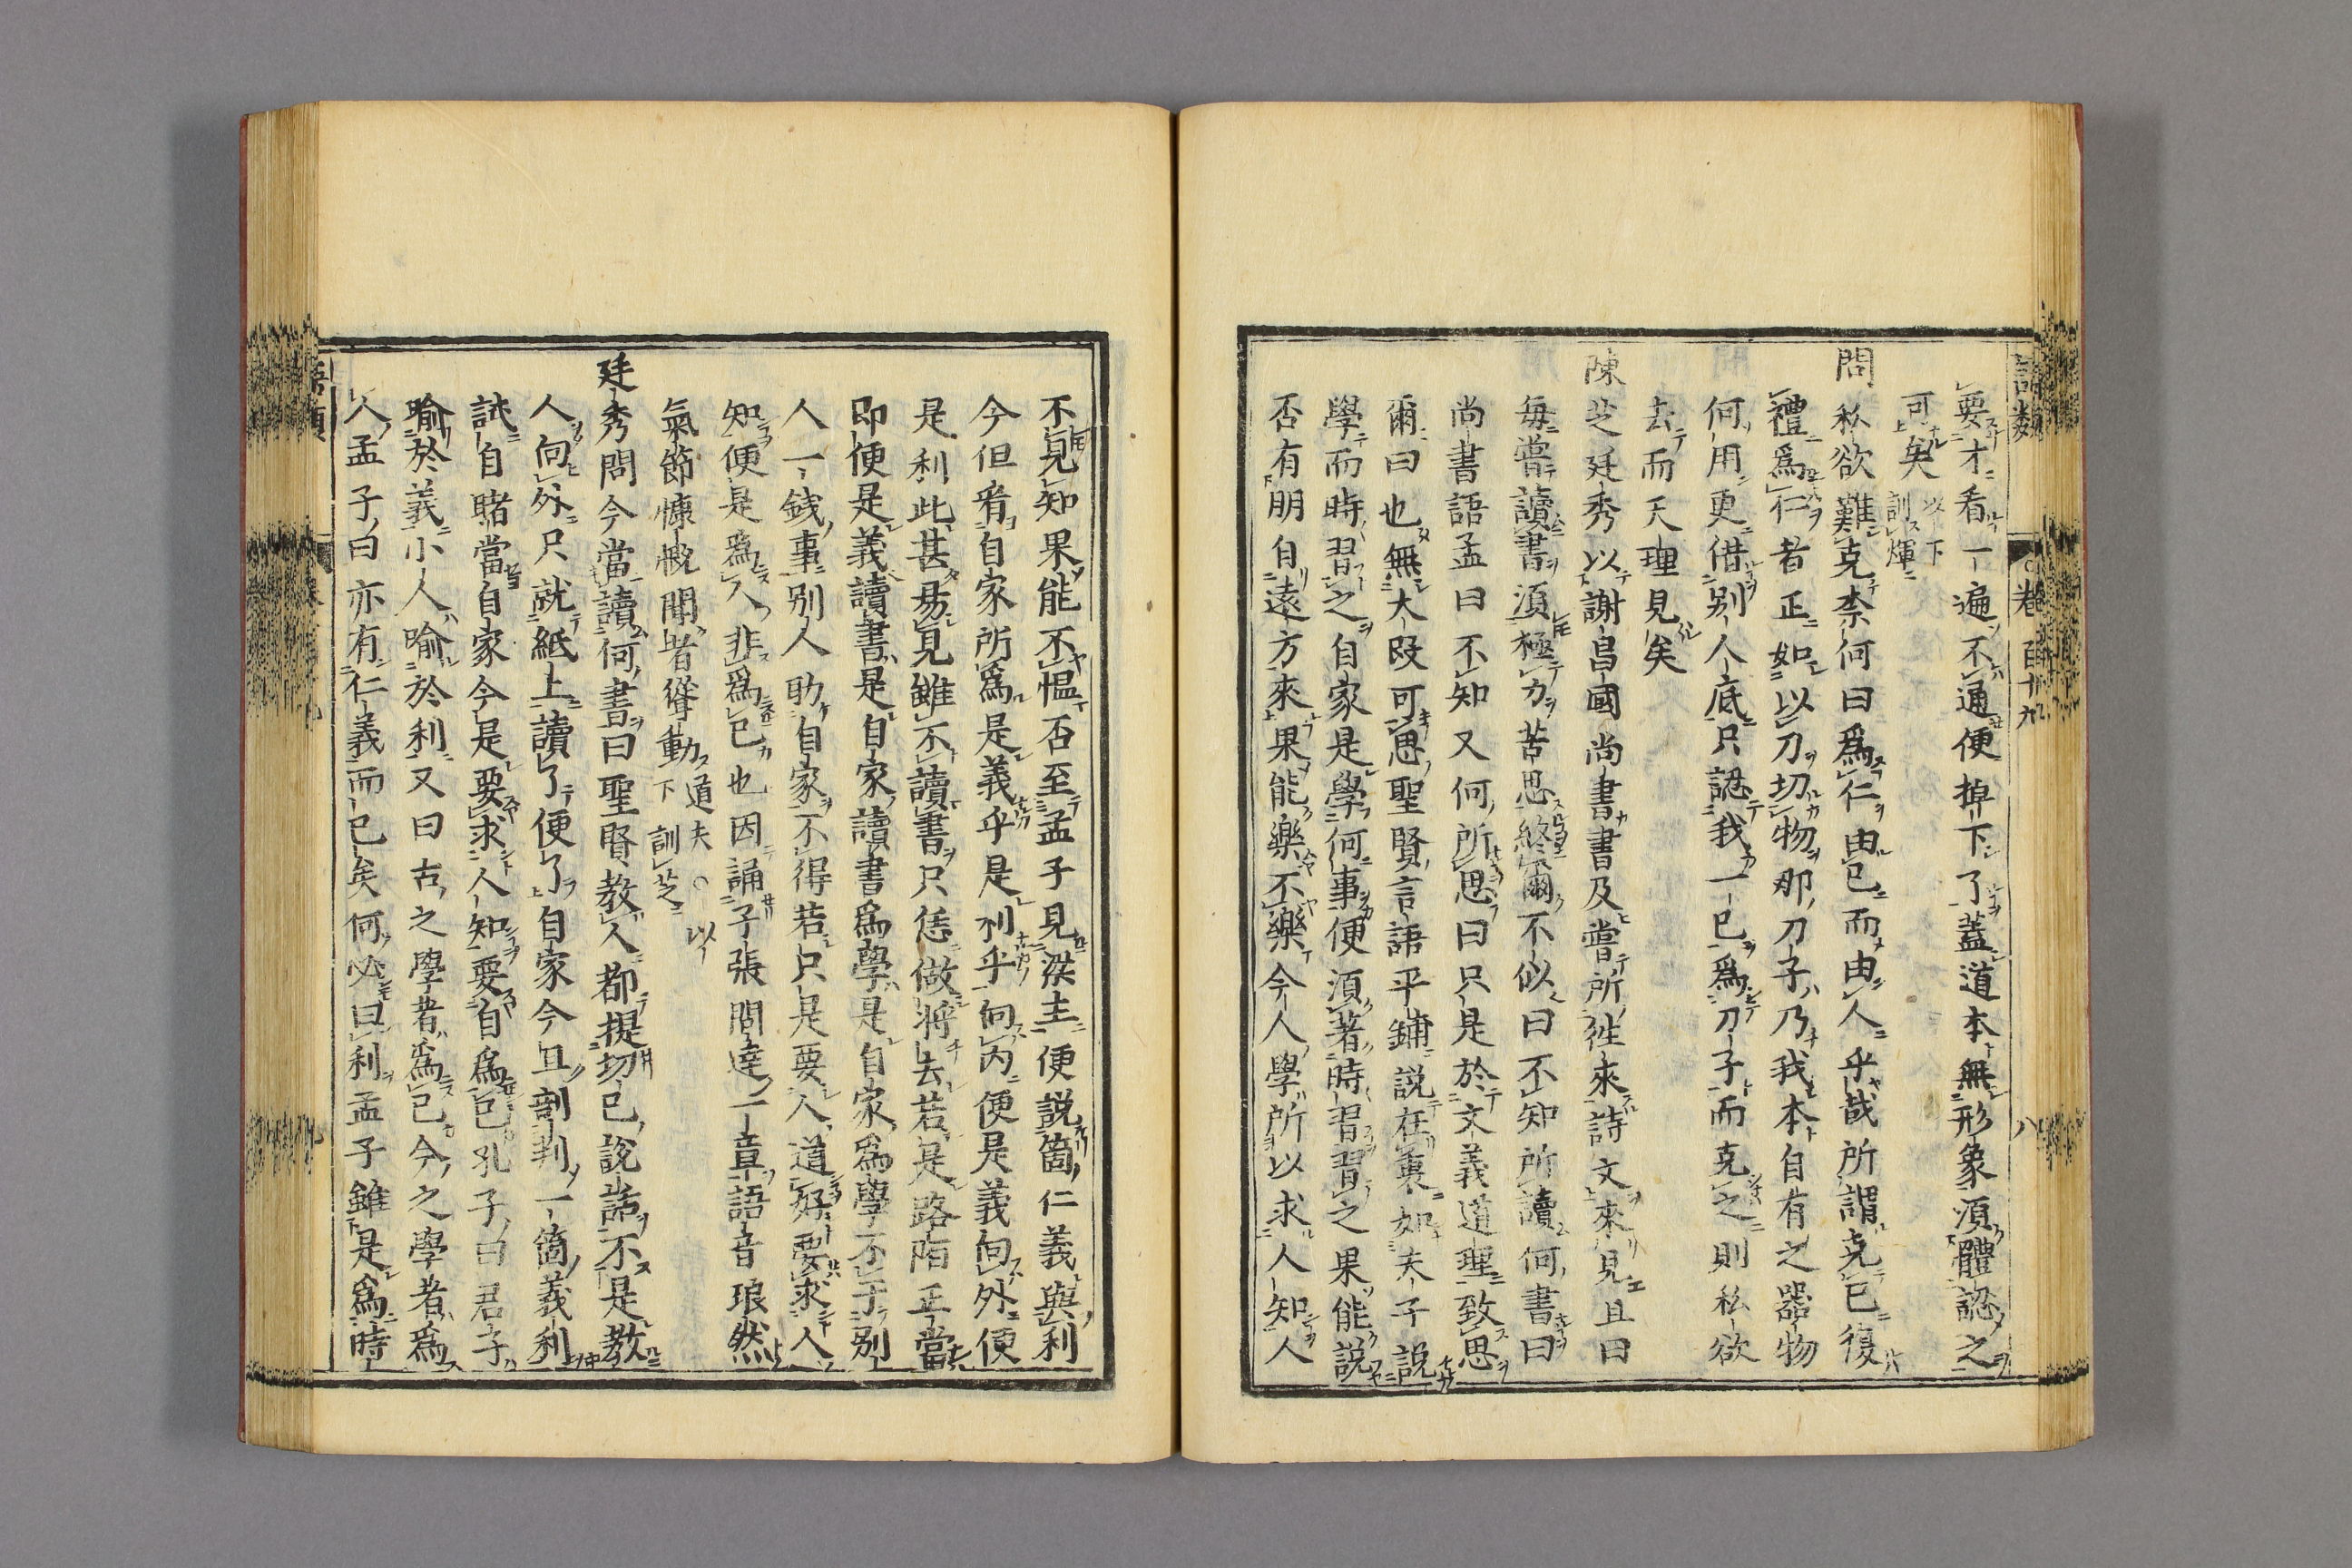 語類 卷百十九 八
要才看一遍不通便掉下了蓋道本無形象須體認之
可矣以下訓煇
問私欲難克柰何曰爲仁由己而由人乎哉所謂克己復
禮爲仁者正如以刀切物那刀子乃我本自有之器物
何用更借别人底只認我一己爲刀子而克之則私欲
去而天理見矣
陳芝廷秀以謝昌國尚書書及嘗所徃來詩文來見且曰
每嘗讀書須極力苦思終爾不似曰不知所讀何書曰
尚書語孟曰不知又何所思曰只是於文義道理致思
爾曰也無大段可思聖賢言語平鋪説在裏如夫子説
學而時習之自家是學何事便須著時習習之果能説
否有朋自遠方來果能樂不樂今人學所以求人知人
不見知果能不愠否至孟子見梁王便說箇仁義與利
今但看自家所爲是義乎是利乎向内便是義向外便
是利此甚易見雖不讀書只恁做將去若是路陌正當
即便是義讀書是自家讀書爲學是自家爲學不干别
人一錢事别人助自家不得若只是要人道好要求人
知便是爲人非爲己也因誦子張問達一章語音琅然
氣節慷慨聞者聳動道夫○以下訓芝
廷秀問今當讀何書曰聖賢教人都提切己說話不是教
人向外只就紙上讀了便了自家今且剖判一箇義利
試自睹當自家今是要求人知要自爲己孔子曰君子
喻於義小人喻於利又曰古之學者爲己今之學者爲
人孟子曰亦有仁義而已矣何必曰利孟子雖是爲時
語類